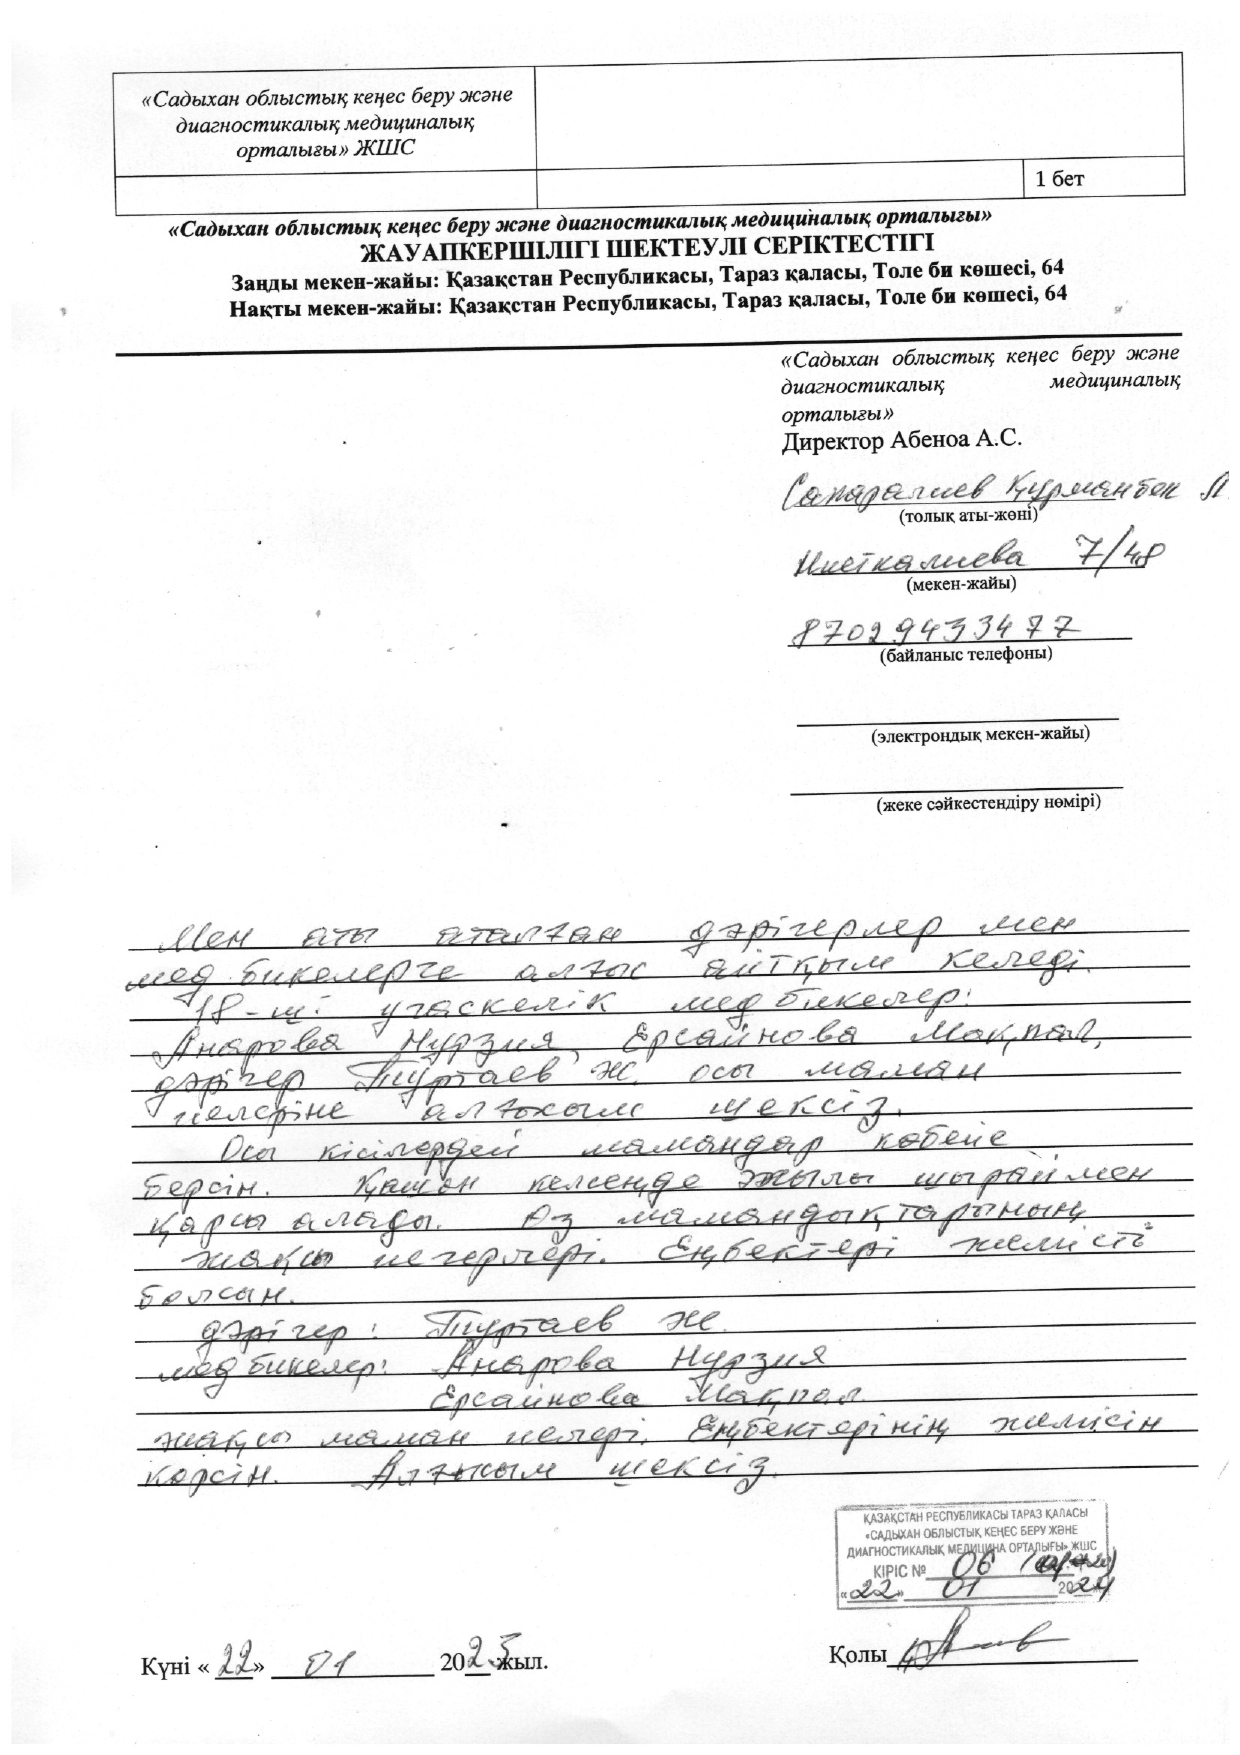 «Садыхан облыстық кеңес беру және
диагностикалық медициналық
орталығы» ЖШС
1 бет
«Садыхан облыстық кеңес беру және диагностикалық медициналық орталығы»
ЖАУАПКЕРШІЛІГІ ШЕКТЕУЛІ СЕРІКТЕСТІГІ
Заңды мекен-жайы: Қазақстан Республикасы, Тараз қаласы, Толе би көшесі, 64
Нақты мекен-жайы: Қазақстан Республикасы, Тараз қаласы, Толе би көшесі, 64
«Садыхан облыстық кеңес беру және
диагностикалық медициналық
орталығы»
Директор Абеноа А.С.
Сапаралиев Құрманбек
(толық аты-жөні)
Ниеткалиева 7/48
(мекен-жайы)
87029433477
(байланыс телефоны)
(электрондық мекен-жайы)
(жеке сәйкестендіру нөмірі)
Мен аты аталған дәрігерлер мен
медбикелерге алғыс айтқым келеді.
18-ші участкелік медбикелер:
Анарова Нурзия, Ерсаинова Мақпал,
дәрігер Туртаев Ж. осы маман
иелеріне алғысым шексіз.
Осы кісілердей мамандар көбейе
берсін. Қашан келсеңде жылы шыраймен
қарсы алады. Өз мамандықтарының
жақсы игерлері. Еңбектері жемісті
болсын.
дәрігер: Туртаев Ж.
медбикелер: Анарова Нурзия
Ерсаинова Мақпал
жақсы маман иелері. Еңбектерінің жемісін
көрсін. Алғысым шексіз.
ҚАЗАҚСТАН РЕСПУБЛИКАСЫ ТАРАЗ ҚАЛАСЫ
«САДЫХАН ОБЛЫСТЫҚ КЕҢЕС БЕРУ ЖӘНЕ
ДИАГНОСТИКАЛЫҚ МЕДИЦИНА ОРТАЛЫҒЫ» ЖШС
КІРІС № 06
«22» 01 2024
Күні «22» 01 2025 жыл.
Қолы